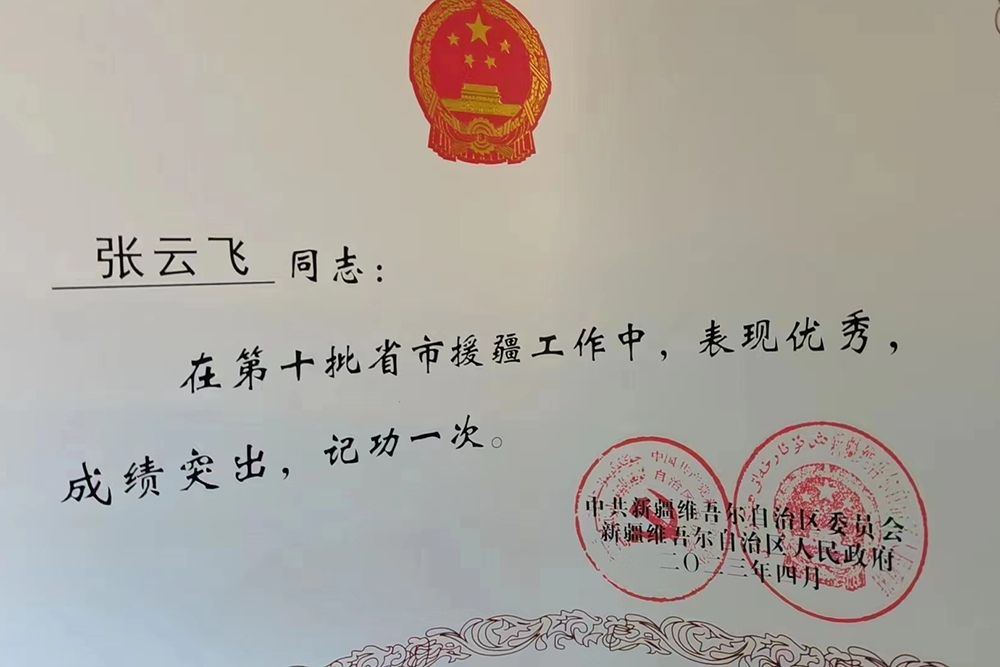 张云飞 同志：
在第十批省市援疆工作中，表现优秀，
成绩突出，记功一次。
中共新疆维吾尔自治区委员会
新疆维吾尔自治区人民政府
二〇二三年四月